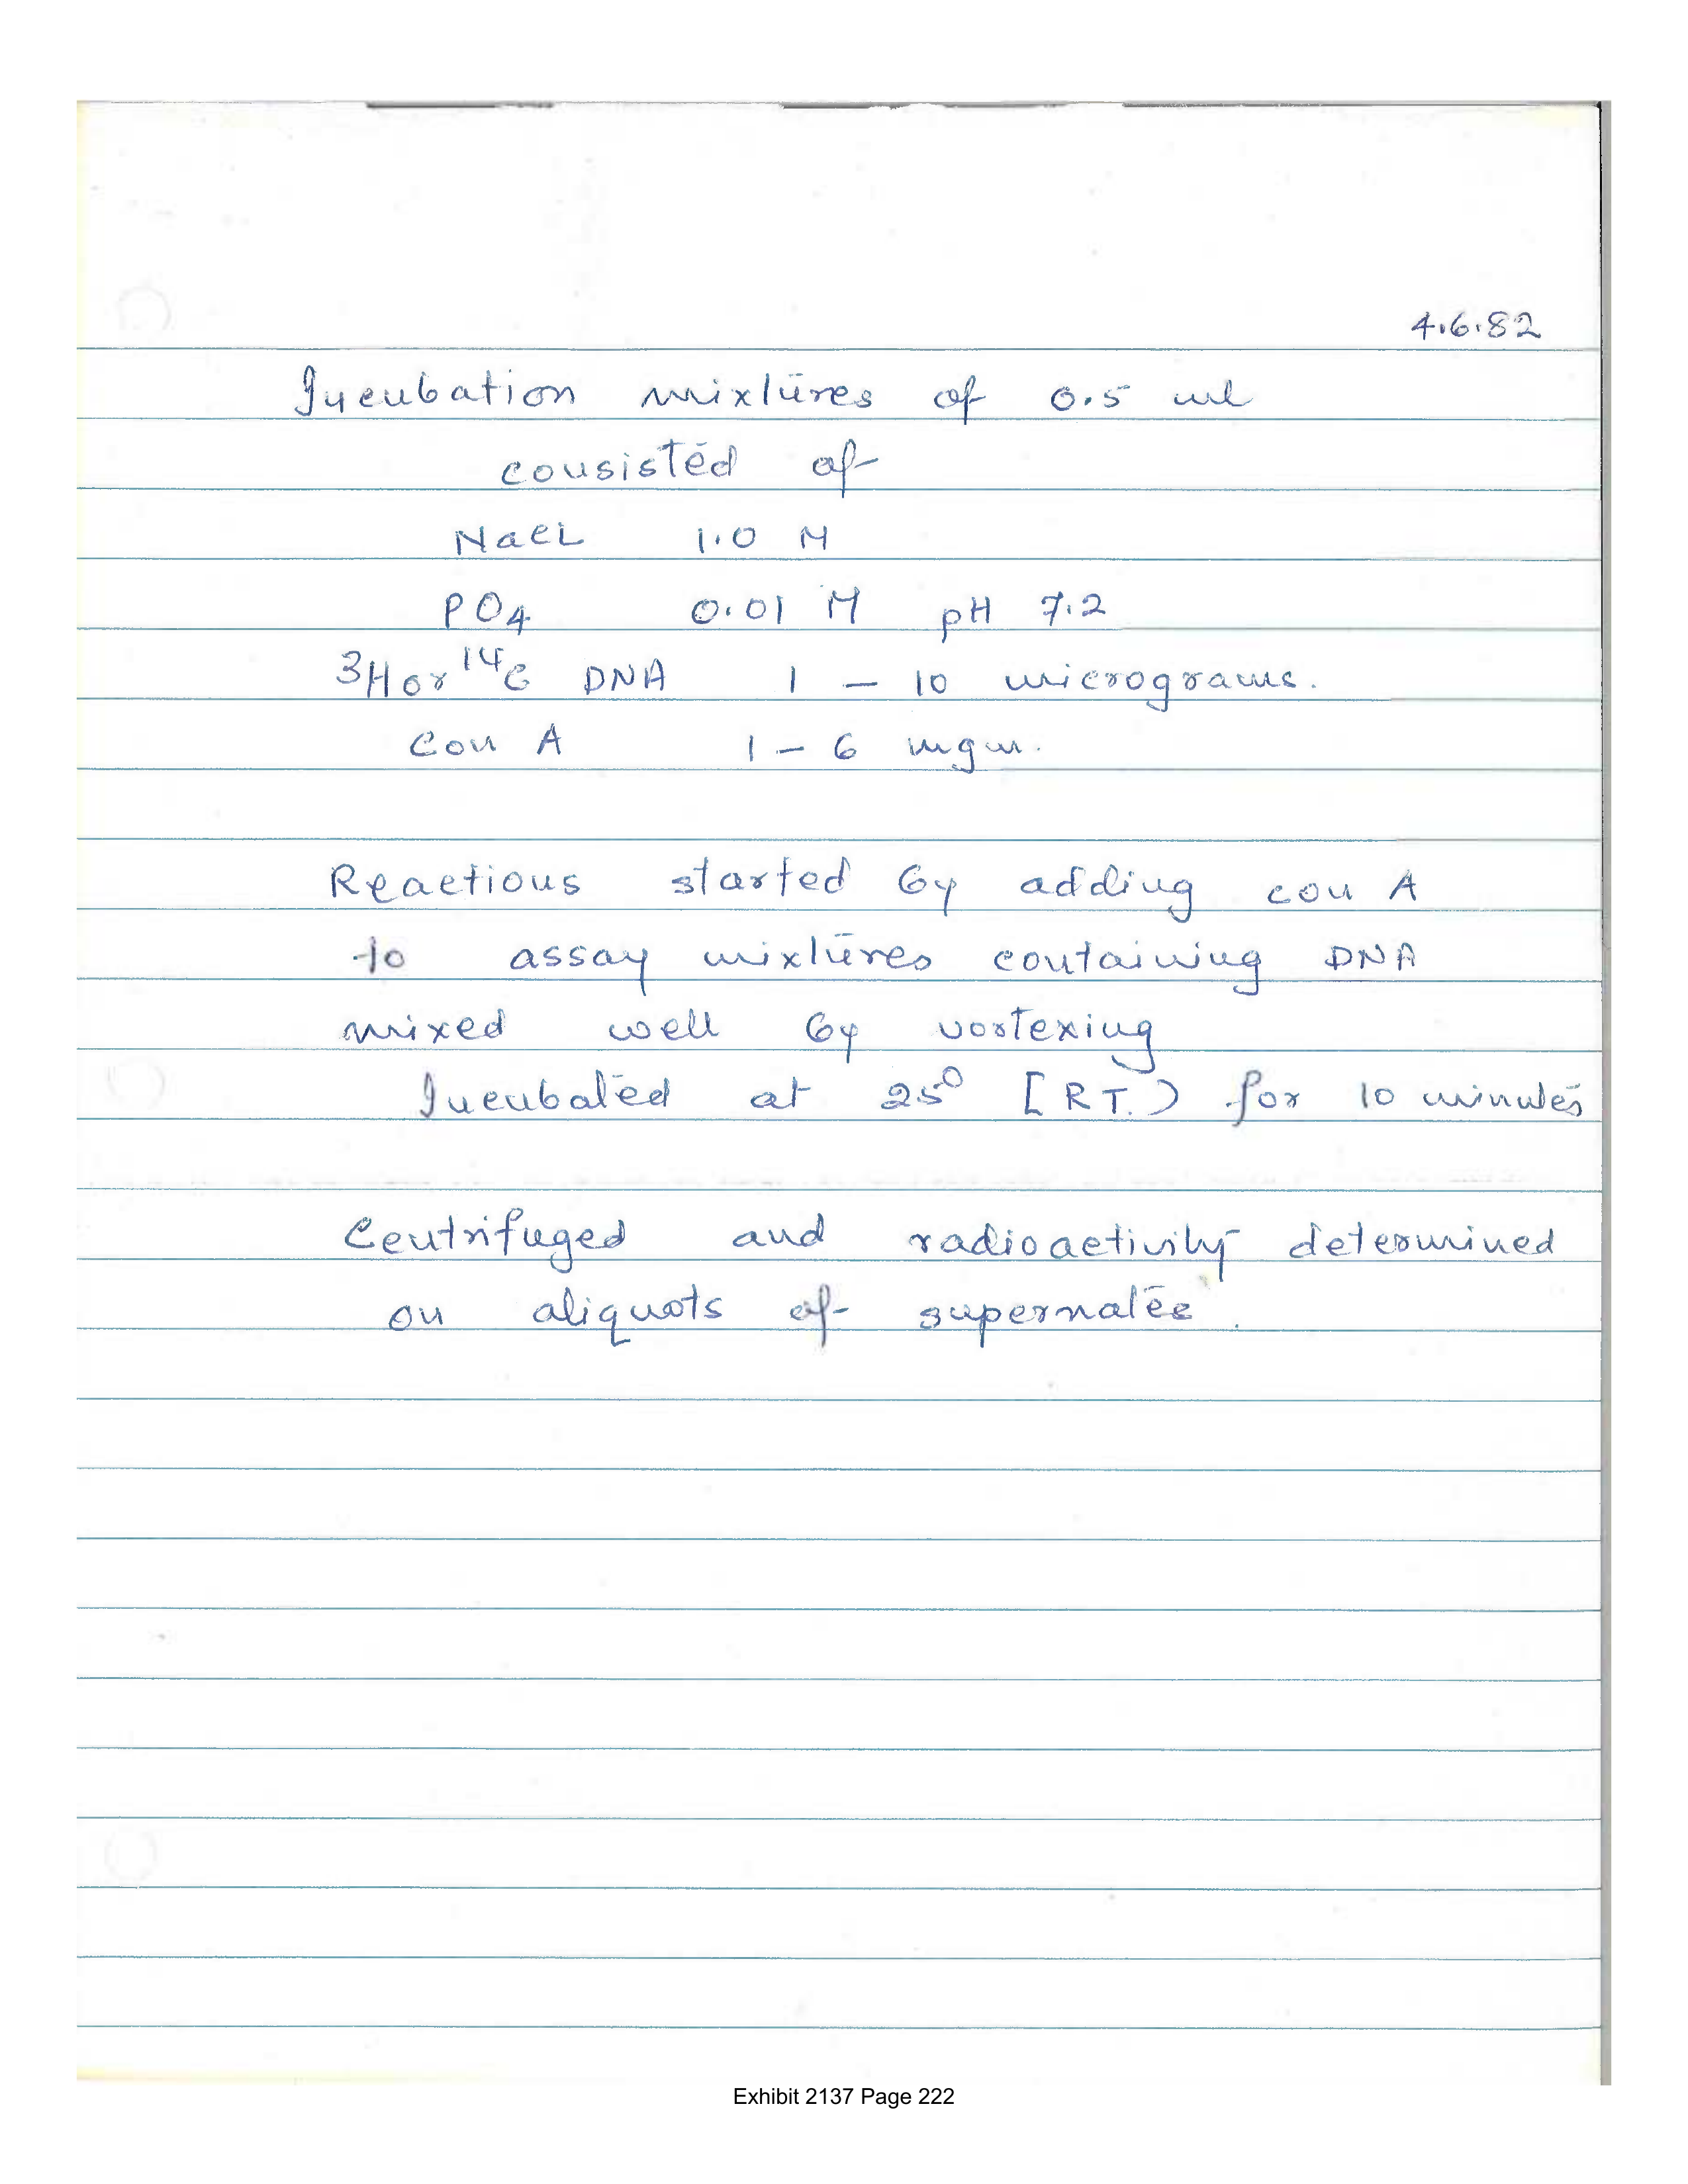 4.6.82
Incubation mixtures of 0.5 ml
consisted of
NaCl 1.0 M
PO4 0.01 M pH 7.2
3H or 14C DNA 1 - 10 micrograms.
Con A 1 - 6 mgm.
Reactions started by adding con A
to assay mixtures containing DNA
mixed well by vortexing
Incubated at 25° [RT.) for 10 minutes
Centrifuged and radioactivity determined
on aliquots of supernate.
Exhibit 2137 Page 222